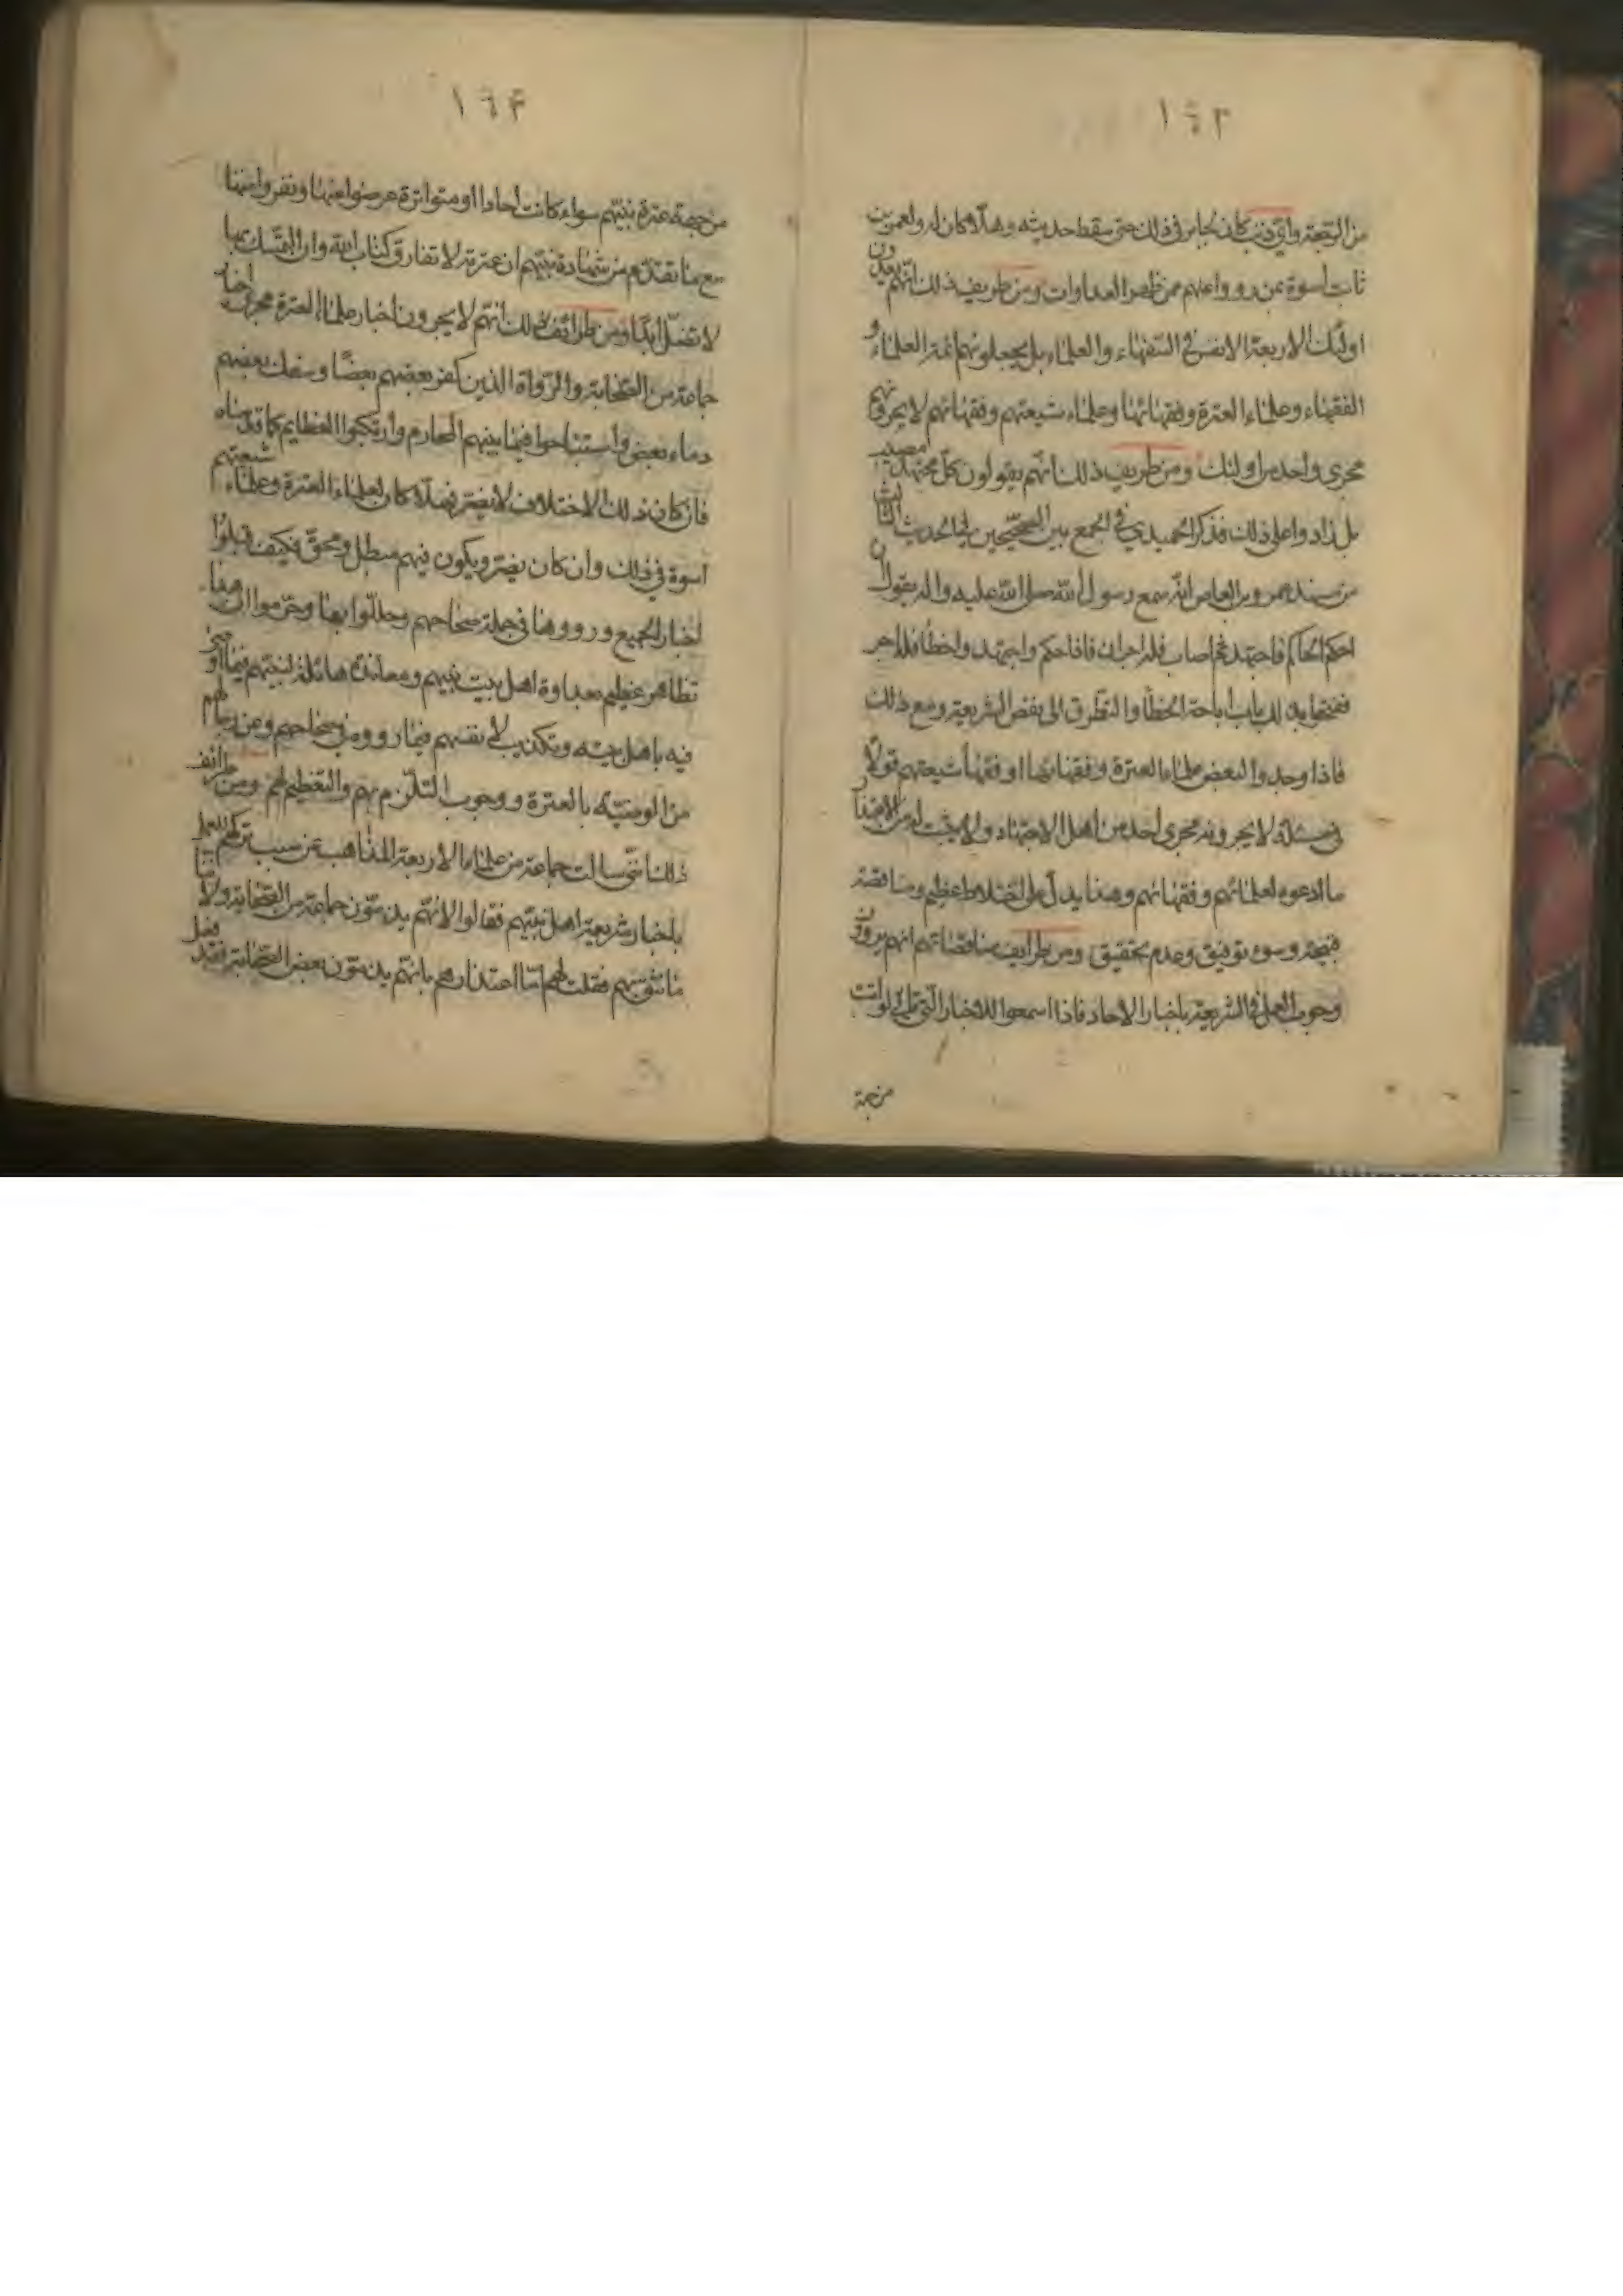 ١٦٣
من الرجعة واي ذنب كان لجابر في ذلك حتى سقط حديثه وهلا كان له ولعمرو بن
ثابت اسوة بمن رووا عنهم ممن ظهر العداوات ومن طريف ذلك انهم يعدون
اولئك الاربعة الانفس في الفقهاء والعلماء بل يجعلونهم ائمة العلماء و
الفقهاء وعلماء العترة وفقهائها وعلماء شيعتهم وفقهائهم لا يجرونهم
مجرى واحد من اولئك ومن طريف ذلك انهم يقولون كل مجتهد مصيب
بل زادوا على ذلك فذكر الحميدي في الجمع بين الصحيحين في الحديث الثالث
من مسند عمرو بن العاص انه سمع رسول الله صلى الله عليه واله يقول ان
احكم الحاكم فاجتهد ثم اصاب فله اجران فاذا حكم واجتهد واخطأ فله اجر
ففتحوا بذلك باب اباحة الخطأ والتطرق الى نقض الشريعة ومع ذلك
فاذا وجدوا لبعض علماء العترة وفقهائها او فقهاء شيعتهم قولا
في مسئلة لا يجرونه مجرى احد من اهل الاجتهاد ولا يثبت له من الاعتذار
ما ادعوه لعلمائهم وفقهائهم وهذا يدل على اختلاط عظيم ومناقضة
قبيحة وسوء توفيق وعدم تحقيق ومن طرايف مناقضاتهم انهم يرون
وجوب العمل في الشريعة باخبار الاحاد فاذا سمعوا للاخبار التي
من جهة
١٦۴
من جهة عترة نبيهم سواء كانت احادا او متواترة عرضوا عنها ونفروا منها
مع ما تقدم من شهادة نبيهم ان عترته لا تفارق كتاب الله وان التمسك بها
لا تضل ابدا ومن طرائف ذلك انهم لا يجرون اخبار علماء العترة مجرى اخبار
جماعة من الصحابة والرواة الذين كفر بعضهم بعضا وسفك بعضهم
دماء بعض واستباحوا فيما بينهم المحارم وارتكبوا العظايم كما قدمناه
فان كان ذلك الاختلاف لا يضر فهلا كان لعلماء العترة وعلماء شيعتهم
اسوة في ذلك وان كان يضر ويكون فيهم مبطل ومحق فكيف قبلوا
اخبار الجميع ورووها في جملة صحاحهم وحللوا بها وحرموا ان هذا
تظاهر عظيم بعداوة اهل بيت نبيهم ومعاندة هائلة لنبيهم فيما اوصى
فيه باهل بيته وتكذيب لانفسهم فيما رووه في صحاحهم وعن ربهم لهم
من الوصية بالعترة ووجوب التلزم بهم والتعظيم لهم ومن طرائف
ذلك انني سالت جماعة من علماء الاربعة المذاهب عن سبب تركهم للعمل
باخبار شيعة اهل نبيهم فقالوا لانهم يذمون جماعة من الصحابة ولاننا
ما نثق بهم فقلت لهم اما اعتذاركم بانهم يذمون بعض الصحابة فقد فعل